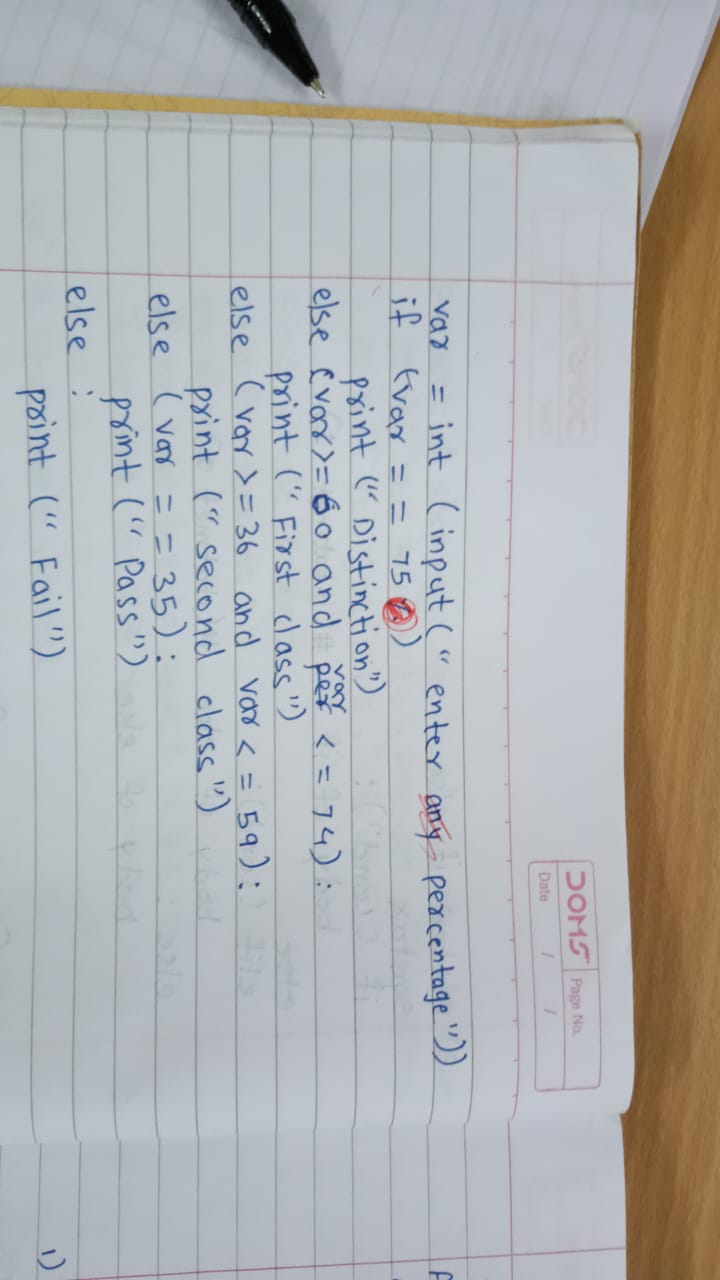 DOMS Page No.
Date / /
var = int (input (" enter any percentage"))
if (var = = 75)
print (" Distinction")
else (var >= 60 and var < = 74) :
print (" First class")
else (var >= 36 and var < = 59) :
print (" second class")
else (var = = 35) :
print (" Pass")
else :
print (" Fail")
1)